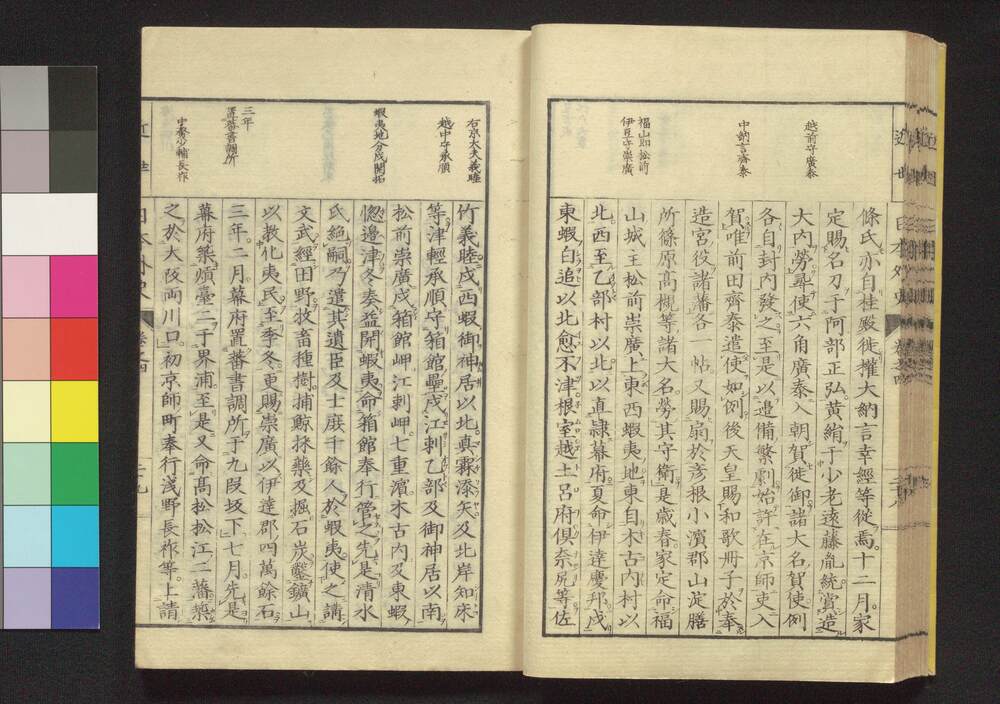 越前守廣泰
中納言齊泰
福山即松前
伊豆守崇廣
條氏亦自桂殿徙權大納言幸經等從焉十二月家
定賜名刀于阿部正弘黃絹于少老遠藤胤統賞造
大內勞尋使六角廣泰入朝賀徙御諸大名賀使例
各自封內發之至是以邊備繁劇始許在京師吏入
賀唯前田齊泰遣使如例後天皇賜和歌冊子於奉
造宮役諸藩各一帖又賜扇於彥根小濱郡山淀膳
所篠原高槻等諸大名勞其守衛是歲春家定命福
山城主松前崇廣上東西蝦夷地東自木古內村以
北西至乙部村以北以直隷幕府夏命伊達慶邦戍
東蝦白追以北愈不津根室越土呂府俱奈尻等佐
右京大夫義睦
越中守承順
蝦夷地分戍開拓
三年
置蕃書調所
中務少輔長祚
竹義睦戍西蝦御神居以北真霖漆矢及北岸知床
等津輕承順守箱館壘戍江刺乙部及御神居以南
松前崇廣戍箱館岬江刺岬七重濱木古內及東蝦
惚邊津冬奏益開蝦夷命箱館奉行管之先是清水
氏絕嗣乃遣其遺臣及士庶千餘人於蝦夷使之講
文武經田野牧畜種樹捕鯨採藥及掘石炭鑿鑛山
以敎化夷民至季冬更賜崇廣以伊達郡四萬餘石
三年二月幕府置蕃書調所于九段坂下七月先是
幕府築熕臺二于界浦至是又命高松松江二藩築
之於大阪両川口初京師町奉行淺野長祚等上請